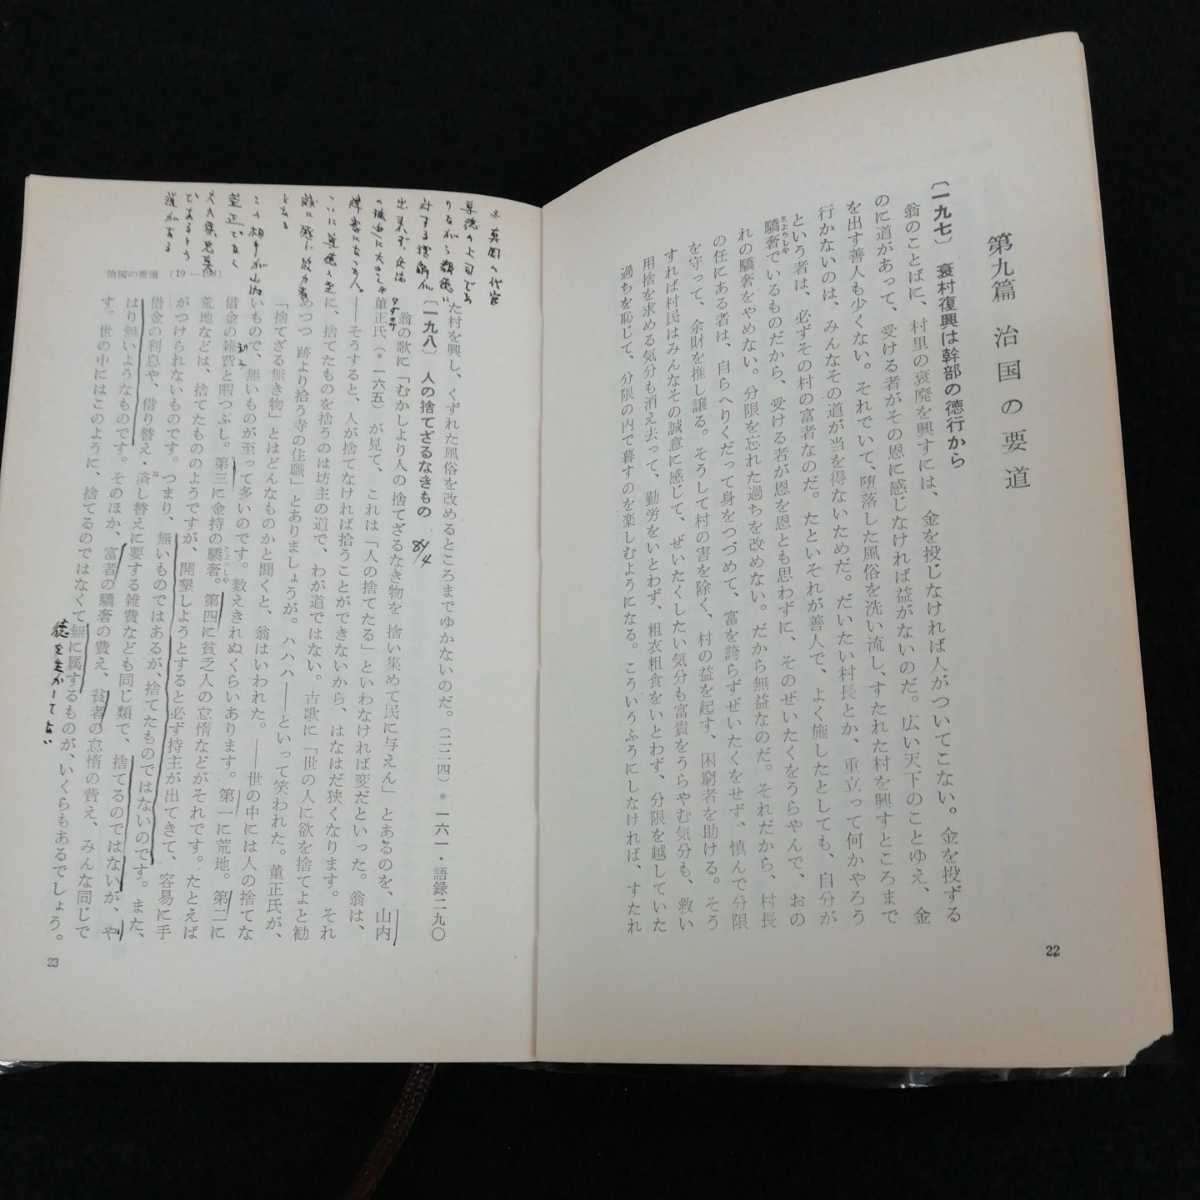 第九篇 治国の要道
〔一九七〕 衰村復興は幹部の徳行から
翁のことばに、村里の衰廃を興すには、金を投じなければ人がついてこない。金を投ずる
のに道があって、受ける者がその恩に感じなければ益がないのだ。広い天下のことゆえ、金
を出す善人も少くない。それでいて、堕落した風俗を洗い流し、すたれた村を興すところまで
行かないのは、みんなその道が当を得ないためだ。だいたい村長とか、重立って何かやろう
という者は、必ずその村の富者なのだ。たといそれが善人で、よく施したとしても、自分が
驕奢でいるものだから、受ける者が恩を恩とも思わずに、そのぜいたくをうらやんで、おの
きようしや
れの驕奢をやめない。分限を忘れた過ちを改めない。だから無益なのだ。それだから、村長
の任にある者は、自らへりくだって身をつづめて、富を誇らずぜいたくをせず、慎んで分限
を守って、余財を推し譲る。そうして村の害を除く、村の益を起す、困窮者を助ける。そう
すれば村民はみんなその誠意に感じて、ぜいたくしたい気分も富貴をうらやむ気分も、救い
用捨を求める気分も消え去って、勤労をいとわず、粗衣粗食をいとわず、分限を越していた
過ちを恥じて、分限の内で暮すのを楽しむようになる。こういうふうにしなければ、すたれ
22
た村を興し、くずれた風俗を改めるところまでゆかないのだ。（二二四）＊一六一・語録二九〇
〔一九八〕 人の捨てざるなきもの
8/4
翁の歌に「むかしより人の捨てざるなき物を 捨い集めて民に与えん」とあるのを、山内
董正氏（＊一六五）が見て、これは「人の捨てたる」といわなければ変だといった。翁は、
――そうすると、人が捨てなければ拾うことができないから、はなはだ狭くなります。それ
に、捨てたものを拾うのは坊主の道で、わが道ではない。古歌に「世の人に欲を捨てよと勧
めつつ 跡より拾う寺の住職」とありましょうが。ハハハ――といって笑われた。董正氏が、
「捨てざる無き物」とはどんなものかと聞くと、翁はいわれた。――世の中には人の捨てな
いもので、無いものが至って多いのです。数えきれぬくらいあります。第一に荒地。第二に
借金の雑費と暇つぶし。第三に金持の驕奢。第四に貧乏人の怠惰などがそれです。たとえば
荒地などは、捨てたもののようですが、開墾しようとすると必ず持主が出てきて、容易に手
がつけられないものです。つまり、無いものではあるが、捨てたものではないのです。また、
借金の利息や、借り替え・済し替えに要する雑費なども同じ類で、捨てるのではないが、や
はり無いようなものです。そのほか、富者の驕奢の費え、貧者の怠惰の費え、みんな同じで
す。世の中にはこのように、捨てるのではなくて無に属するものが、いくらもあるでしょう。
治国の要道
23